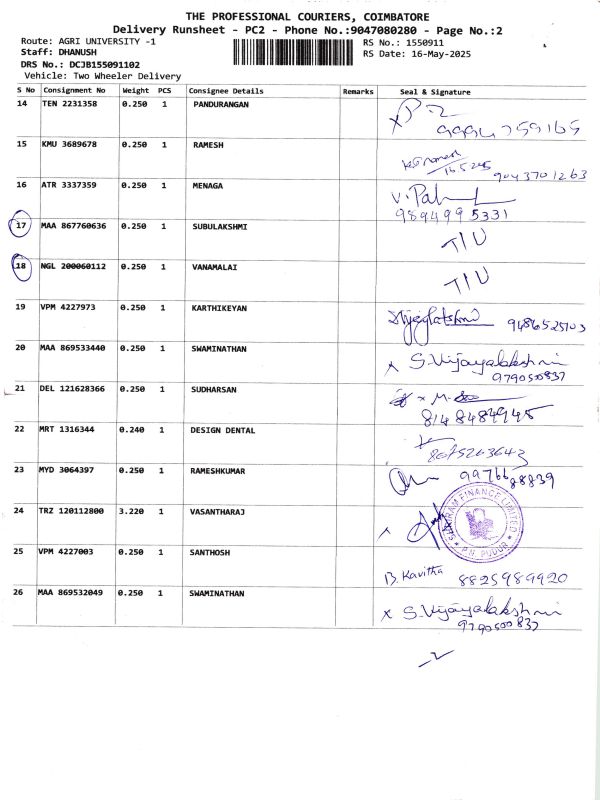 THE PROFESSIONAL COURIERS, COIMBATORE
Delivery Runsheet - PC2 - Phone No.:9047080280 - Page No.:2
Route: AGRI UNIVERSITY -1
RS No.: 1550911
Staff: DHANUSH
RS Date: 16-May-2025
DRS No.: DCJB155091102
Vehicle: Two Wheeler Delivery
S No Consignment No Weight PCS Consignee Details Remarks Seal & Signature
14 TEN 2231358 0.250 1 PANDURANGAN
15 KMU 3689678 0.250 1 RAMESH
9043701263
16 ATR 3337359 0.250 1 MENAGA
9894995331
17 MAA 867760636 0.250 1 SUBULAKSHMI T/U
18 NGL 200060112 0.250 1 VANAMALAI T/U
19 VPM 4227973 0.250 1 KARTHIKEYAN
20 MAA 869533440 0.250 1 SWAMINATHAN x S.Vijayalakshmi
9790500837
21 DEL 121628366 0.250 1 SUDHARSAN
22 MRT 1316344 0.240 1 DESIGN DENTAL
23 MYD 3064397 0.250 1 RAMESHKUMAR
24 TRZ 120112800 3.220 1 VASANTHARAJ
SHRIRAM FINANCE LIMITED
P.N. PUDUR
25 VPM 4227003 0.250 1 SANTHOSH B. Kavitha 8825989920
26 MAA 869532049 0.250 1 SWAMINATHAN x S.Vijayalakshmi
9790500837